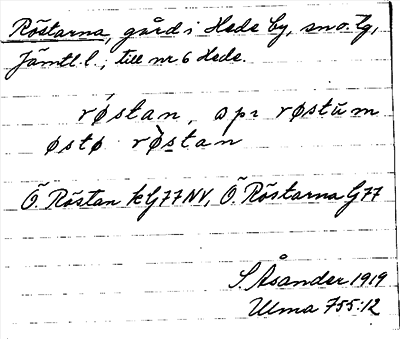 Röstarna, gård i Hede by, sn o. tg,
Jämtl. l.; till nr 6 Hede.
røstan, api røstùm
østø røstan
Ö. Röstan kG77NV, Ö. Röstarna G77
S. Åsander 1919
Ulma 755:12